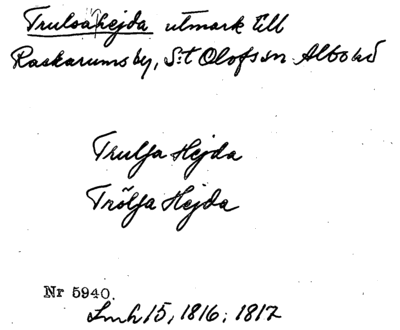 Trulsahejda utmark till
Raskarums by, S:t Olofs sn Albo hd
Trulsa Hejda
Trõlsa Hejda
Nr 5940.
Lmh 15, 1816; 1817